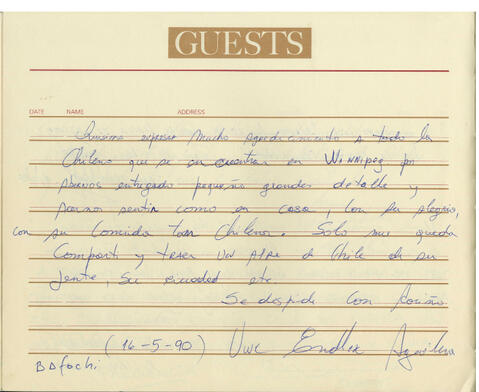 GUESTS
DATE NAME ADDRESS
Quisima expresar Mucho agradecimiento a todo la
Chileno que se encuentran en Winnipeg por
abernos entregado pequeño grandes detalle y
sentir como en casa, con su alegria,
con su Comida tan Chilena. Solo me queda
Comparti y traer un aire de Chile de su
Jente, su ciudad etc.
Se despide con Cariño
(16-5-90) Uwe Endler Aguilera